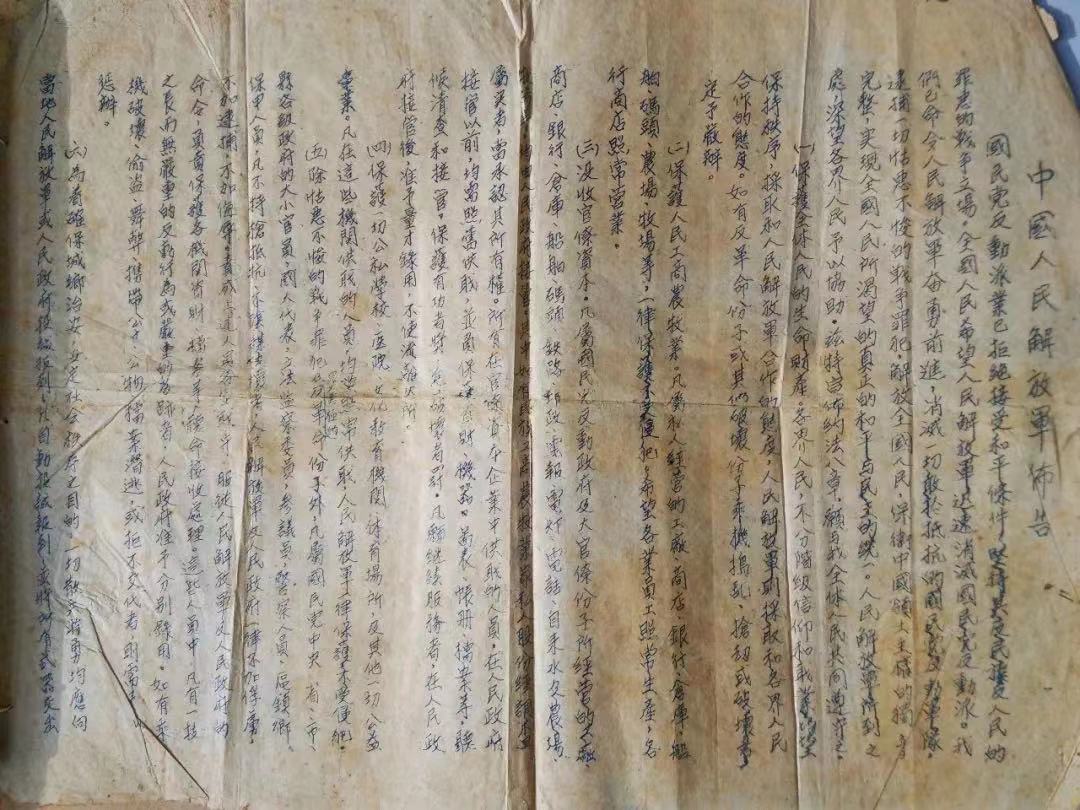 中國人民解放軍佈告
國民党反動派業已拒絕接受和平條件，堅持其反民族反人民的
罪惡的戰爭立場。全國人民希望人民解放軍迅速消滅國民党反動派。我
們已命令人民解放軍奋勇前進，消滅一切敢於抵抗的國民党反動軍隊，
逮捕一切怙惡不悛的戰爭罪犯，解放全國人民，保衛中國領土主權的獨立
完整，实現全國人民所渴望的真正的和平与民主的統一。人民解放軍所到之
處，深望各界人民予以協助。茲特宣佈約法八章，願与我全体人民共同遵守之
(一)保護全体人民的生命財產。各界人民，不分階級信仰和职業，望
保持秩序，採取和人民解放軍合作的態度。人民解放軍則採取和各界人民
合作的態度。如有反革命份子或其他破壞份子乘機搗乱，搶刼或破壞者，
定予嚴辦。
(二)保護人民工商農牧業。凡屬私人經营的工廠、商店、銀行、倉庫、船
舶、碼頭、農場、牧場等，一律保護不受侵犯。希望各業員工照常生產，各
行商店照常营業。
(三)没收官僚資本。凡屬國民党反動政府及大官僚份子所經营的工廠、
商店、銀行、倉庫、船舶、碼頭、鉄路、郵政、電報、電灯、電話、自來水及農場、
牧場等，均由人民政府接管。其中如有民族工商農牧業家私人股份經調查
屬实者，當承認其所有權。所有在官僚資本企業中供职的人員，在人民政府
接管以前，均需照舊供职，並負責保護資財、機器、圖表、帳册、檔案等，聽
候清查和接管。保護有功者奖，怠工破壞者罰。凡願继續服務者，在人民政
府接管後，准予量才錄用，不使流離失所。
(四)保護一切公私学校、医院、文化教育機関、体育場所及其他一切公益
事業。凡在這些機関供职的人員，均望照常供职，人民解放軍一律保護不受侵犯。
(五)除怙惡不悛的戰爭罪犯及反革命份子外，凡屬國民党中央、省、市、
縣各級政府的大小官員，國大代表，立法監察委員，參議員，警察人員，區鎮鄉
保甲人員，凡不持槍抵抗，不陰謀破壞者，人民解放軍及人民政府一律不加俘虜，
不加逮捕，不加侮辱。責成上述人員各安职守，服從人民解放軍及人民政府的
命令，負責保護各機関資財、檔案等，聽命接收處理。這些人員中，凡有一技
之長而無嚴重的反動行為或嚴重的劣跡者，人民政府准予分别錄用。如有乘
機破壞，偷盗，舞弊，携帶公款、公物、檔案潜逃，或拒不交代者，則當予
惩辦。
(六)為着確保城鄉治安、安定社会秩序之目的，一切散兵游勇，均應向
當地人民解放軍或人民政府投誠報到。凡自動投誠報到，並將所有武器交出